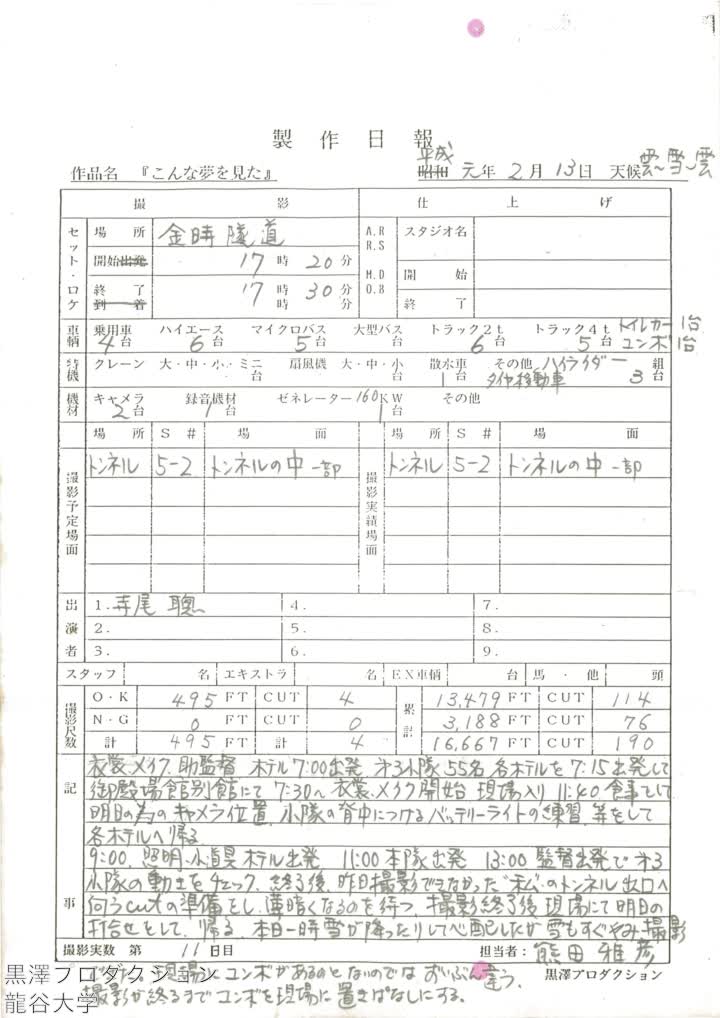 製作日報
作品名 『こんな夢を見た』 平成 昭和 元年 2月 13日 天候 雲〜雪〜雲
撮影 仕上げ
セット・ロケ 場所 金時隧道 A.R R.S スタジオ名
開始 出発 17時 20分 M.D 開始
終了 到着 17時 30分 O.B 終了
車輌 乗用車 4台 ハイエース 6台 マイクロバス 5台 大型バス 台 トラック2t 6台 トラック4t 5台 トイレカー1台 ユンボ1台
特機 クレーン 大・中・小・ミニ 台 扇風機 大・中・小 台 散水車 1台 その他 ハイライダー タイヤ移動車 3組台
機材 キャメラ 2台 録音機材 1台 ゼネレーター 160KW 1台 その他
場所 S# 場面 場所 S# 場面
撮影予定場面 トンネル 5-2 トンネルの中 一部 撮影実績場面 トンネル 5-2 トンネルの中 一部
出演者 1. 寺尾 聰 4. 7.
2. 5. 8.
3. 6. 9.
スタッフ 名 エキストラ 名 EX車輌 台 馬・他 頭
撮影尺数 O・K 495 FT CUT 4 累計 13,479 FT CUT 114
N・G 0 FT CUT 0 3,188 FT CUT 76
計 495 FT CUT 4 16,667 FT CUT 190
記事
衣裳、メイク、助監督 ホテル7:00出発 オ3小隊55名 各ホテルを7:15出発して
御殿場館別館にて7:30〜衣裳、メイク開始 現場入り11:40 食事をして
明日の為のキャメラ位置、小隊の背中につけるバッテリーライトの練習、等をして
各ホテルへ帰る
9:00、照明、小道具ホテル出発 11:00 本隊出発 13:00 監督出発でオ3
小隊の動きをチェック、終了後、昨日撮影できなかった“私”のトンネル出口へ
向うcutの準備をし、薄暗くなるのを待つ、撮影終了後、現場にて明日の
打合せをして、帰る、本日一時雪が降ったりして心配したが雪もすぐやみ撮影
撮影実数 第 11日目 担当者: 熊田雅彦
現場にユンボがあるのとないのでは ずいぶん違う、 黒澤プロダクション
撮影が終るまでユンボを現場に置きぱなしにする。
黒澤プロダクション
龍谷大学